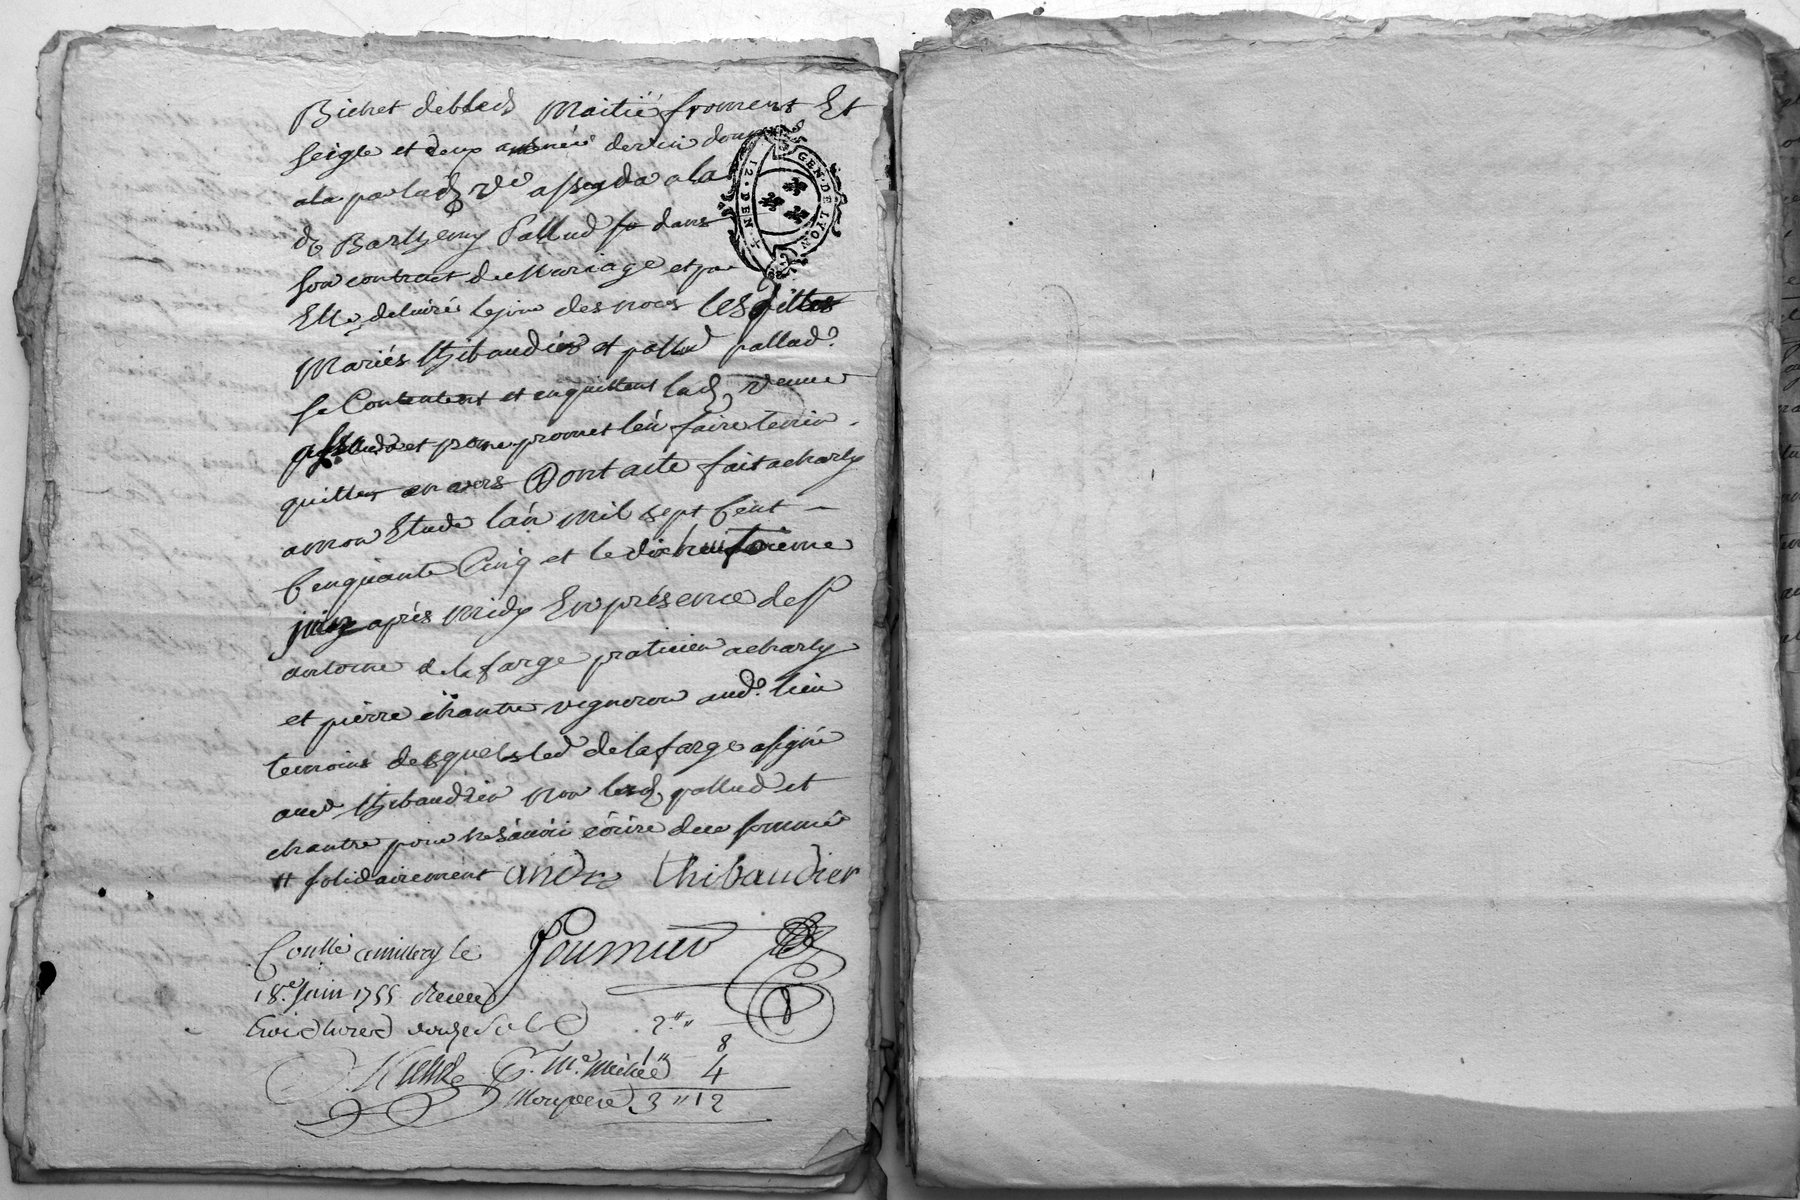 Bichet debled Moitié froment Et
seigle et deux année de vin donn
a la pallud
de Barthemy Pallud dans
son contract de Mariage et par
Elle delivré le jour des noces Les
Mariés thibaudier et pallud
se Contentent et en quittent lad. veuve
et promet l'en faire tenir
quitter envers Dont acte fait a charly
a mon Etude l'an mil sept Cent
Cenquante Cinq et le dixhuitieme
juin après midy En présence de sr
antoine delafarge praticien a charly
et pierre chantre vigneron aud. lieu
temoins desquels led. delafarge a signé
avec thibaudier non lesd. pallud et
chantre pour ne sçavoir écrire de ce sommé
# solidairement andre thibaudier
GEN · DE LYON
12 · DEN
Conllé a millery le
18e. Juin 1755
trois livres douze sols
2 " "
8
4
3 " 12